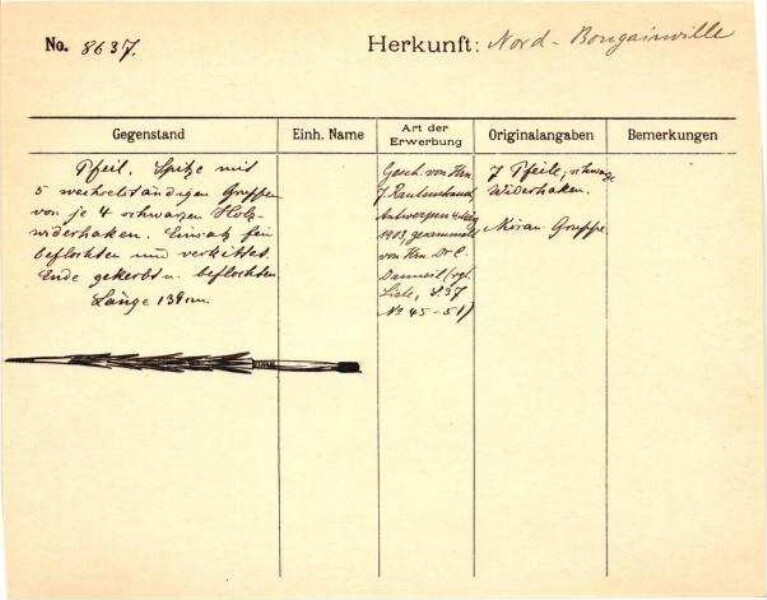 No. 8637.
Herkunft: Nord-Bougainville
Gegenstand
Einh. Name
Art der Erwerbung
Originalangaben
Bemerkungen
Pfeil. Spitze mit
5 wechselständigen Gruppen
von je 4 schwarzen Holz-
widerhaken. Einsatz fein
beflochten und verkittet.
Ende gekerbt u. beflochten.
Länge 139 cm.
Gesch. von Hrn.
J. Rautenstrauch,
Antwerpen 4. März
1913, gesammelt
von Hrn. Dr. C.
(vgl.
Liste, S. 37
No 45-51)
7 Pfeile, schwarze
Widerhaken.
Gruppe